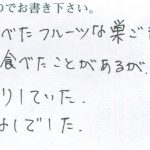 のでお書き下さい。
べたフルーツな巣ご
食べたことがあるが、
りしていた.
なしでした.